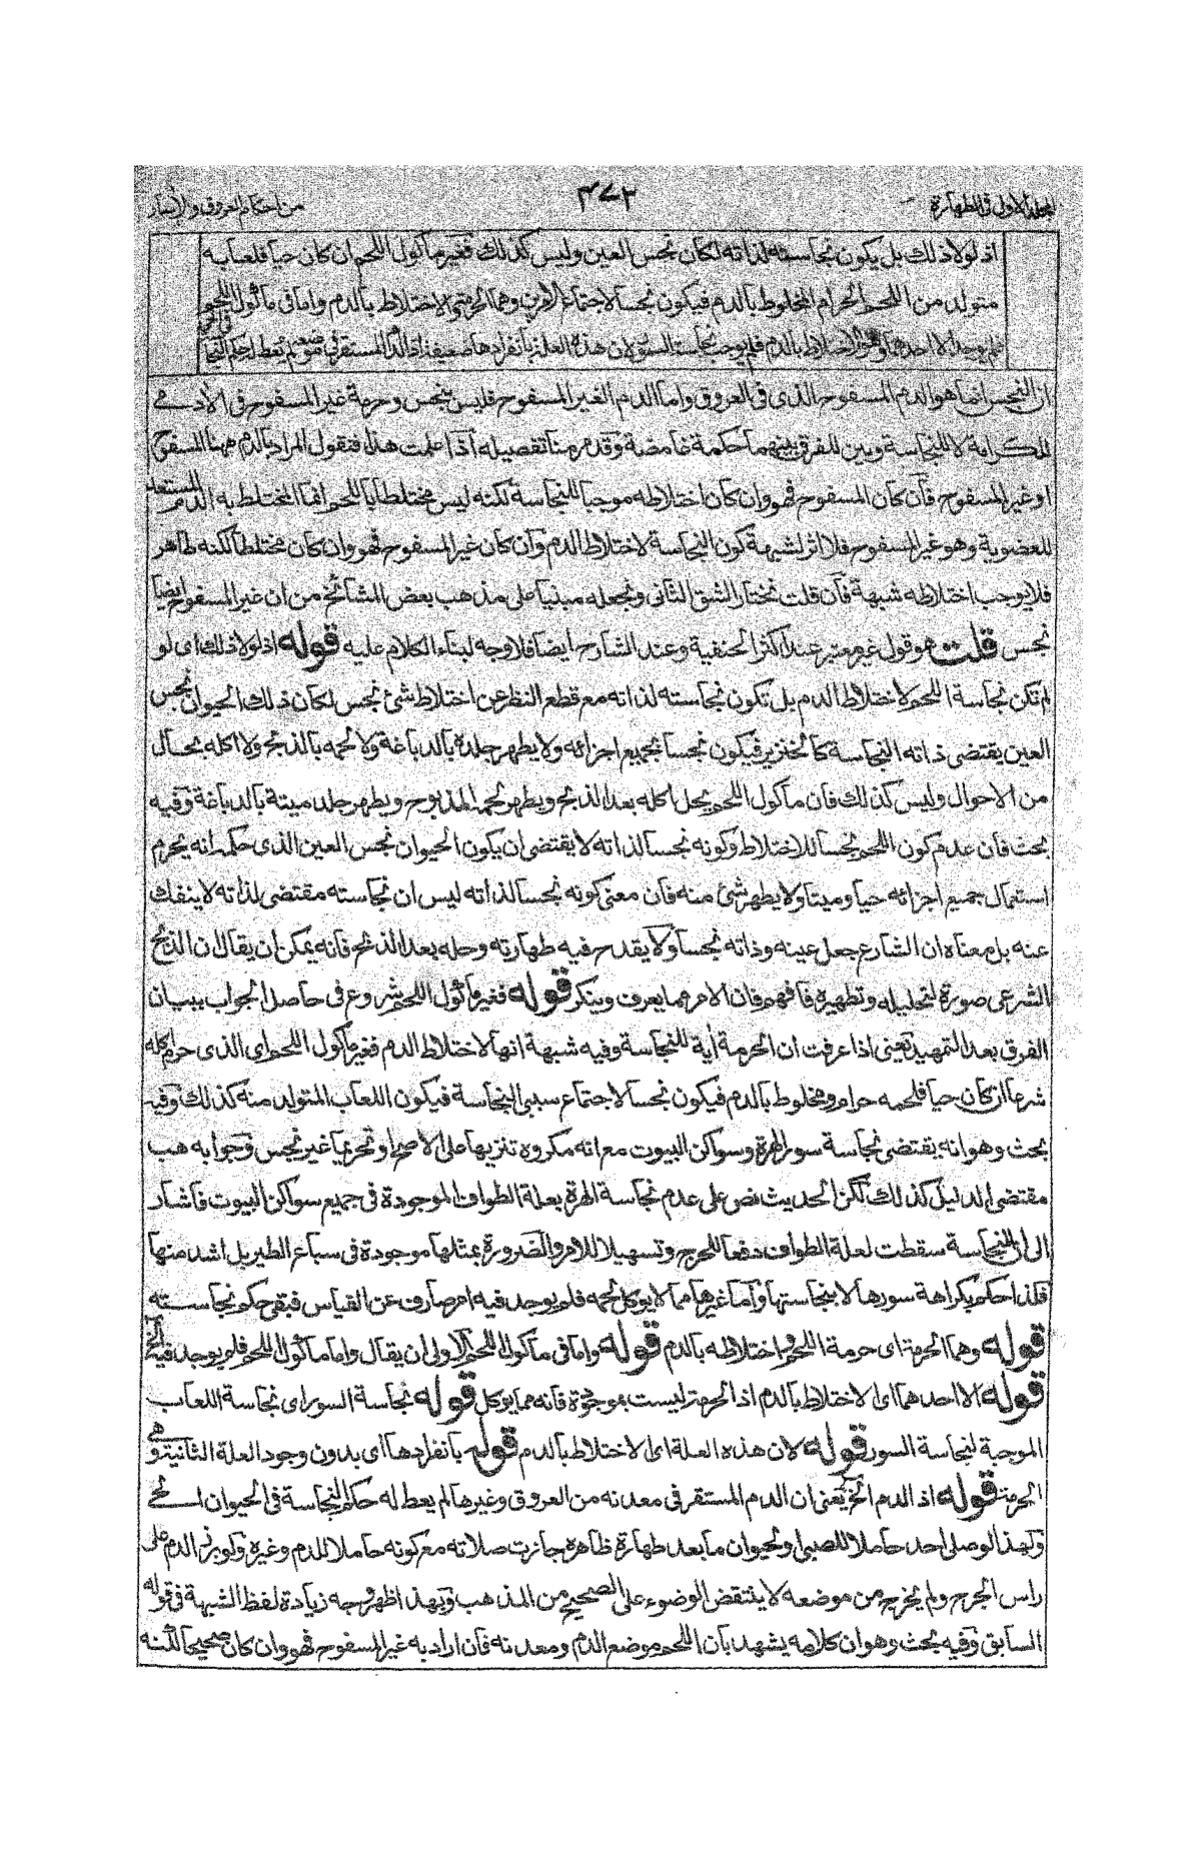 المجلد الاول فى الطهارة ۴۷۳ من احكام
اذ لولا ذلك بل يكون نجاسته لذاته لكان نجس العين وليس كذلك فغير مأكول اللحم ان كان حيا فلعابه
متولد من اللحم الحرام المخلوط بالدم فيكون نجسا لاجتماع الامرين وهما الحرمة والاختلاط بالدم واما فى مأكول اللحم
فلم يوجد الا احدهما وهو الاختلاط بالدم فلم يوجب نجاسة السؤر لان هذه العلة بانفرادها ضعيفة اذ الدم المستقر فى موضعه لم يعط له حكم النجاسة
ان النجس انما هو الدم المسفوح الذى فى العروق واما الدم الغير المسفوح فليس بنجس وحرمة غير المسفوح فى الآدمى
للكرامة لا للنجاسة وبين للفرق بينهما حكمة غامضة وقد مر منا تفصيله اذا علمت هذا فنقول المراد بالدم ههنا المسفوح
او غير المسفوح فان كان المسفوح فهو وان كان اختلاطه موجبا للنجاسة لكنه ليس مختلطا باللحم انما المختلط به الدم المستعد
للعضوية وهو غير المسفوح فلا اثر لشبهة كون النجاسة لاختلاط الدم وان كان غير المسفوح فهو وان كان مختلطا لكنه طاهر
فلا يوجب اختلاطه شبهة فان قلت نختار الشق الثانى ونجعله مبنيا على مذهب بعض المشائخ من ان غير المسفوح ايضا
نجس قلت هو قول غير معتبر عند اكثر الحنفية وعند الشارح ايضا فلا وجه لبناء الكلام عليه قوله اذ لولا ذلك اى لو
لم تكن نجاسة اللحم لاختلاط الدم بل تكون نجاسته لذاته مع قطع النظر عن اختلاط شئ نجس لكان ذلك الحيوان نجس
العين يقتضى ذاته النجاسة كالخنزير فيكون نجسا بجميع اجزائه ولا يطهر جلده بالدباغة ولا لحمه بالذبح ولا اكله بحال
من الاحوال وليس كذلك فان مأكول اللحم يحل اكله بعد الذبح ويطهر لحم المذبوح ويطهر جلد ميتة بالدباغة وفيه
بحث فان عدم كون اللحم نجسا للاختلاط وكونه نجسا لذاته لا يقتضى ان يكون الحيوان نجس العين الذى حكمه انه يحرم
استعمال جميع اجزائه حيا وميتا ولا يطهر شئ منه فان معنى كونه نجسا لذاته ليس ان نجاسته مقتضى لذاته لا ينفك
عنه بل معناه ان الشارع جعل عينه وذاته نجسا ولا يقدح فيه طهارته وحله بعد الذبح فانه يمكن ان يقال ان الذبح
الشرعى صورة لتحليله وتطهيره فافهم فان الامر مما يعرف وينكر قوله فغير مأكول اللحم شروع فى حاصل الجواب ببيان
الفرق بعد التمهيد يعنى اذا عرفت ان الحرمة آية للنجاسة وفيه شبهة انها لاختلاط الدم فغير مأكول اللحم اى الذى حرم اكله
شرعا ان كان حيا فلحمه حرام ومخلوط بالدم فيكون نجسا لاجتماع سببى النجاسة فيكون اللعاب المتولد منه كذلك وفيه
بحث وهو انه يقتضى نجاسة سور الهرة وسواكن البيوت مع انه مكروه تنزيها على الاصح او تحريما غير نجس وجوابه هب
مقتضى الدليل كذلك لكن الحديث نص على عدم نجاسة الهرة بعلة الطواف الموجودة فى جميع سواكن البيوت فاشار
الى ان النجاسة سقطت لعلة الطواف دفعا للحرج وتسهيلا للامر والضرورة بمثلها موجودة فى سباع الطير بل اشد منها
فلذا حكم بكراهة سورها لا بنجاستها واما غيرها مما لا يوكل لحمه فلم يوجد فيه امر صارف عن القياس فبقى حكم نجاسته
قوله وهما الحرمة اى حرمة اللحم واختلاطه بالدم قوله واما فى مأكول اللحم الاولى ان يقال واما مأكول اللحم فلم يوجد فيه الخ
قوله الا احدهما اى الاختلاط بالدم اذ الحرمة ليست بموجودة فانه مما يوكل قوله نجاسة السور اى نجاسة اللعاب
الموجبة لنجاسة السور قوله لان هذه العلة اى الاختلاط بالدم قوله بانفرادها اى بدون وجود العلة الثانية وهى
الحرمة قوله اذ الدم الخ يعنى ان الدم المستقر فى معدنه من العروق وغيرها لم يعط له حكم النجاسة فى الحيوان الحى
ولهذا لو صلى احد حاملا للصبى او لحيوان ما بعد طهارة ظاهره جازت صلاته مع كونه حاملا للدم وغيره ولو برز الدم على
راس الجرح ولم يخرج من موضعه لا ينتقض الوضوء على الصحيح من المذهب وبهذا ظهر وجه زيادة لفظ الشبهة فى قوله
السابق وفيه بحث وهو ان كلامه يشهد بان اللحم موضع الدم ومعدنه فان اراد به غير المسفوح فهو وان كان صحيحا لكنه